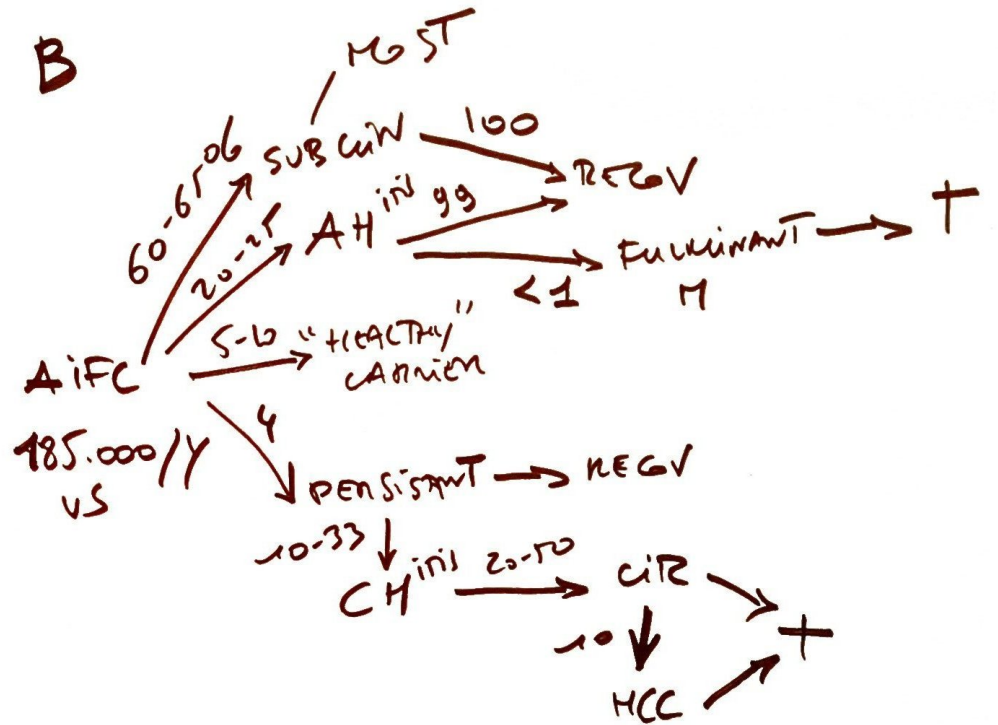 B
MOST
60-65 %
SUBCLIN
100
RECOV
20-25
AHitis
99
<1
FULMINANT
H
†
5-10
"HEALTHY"
CARRIER
AiFC
185.000/Y
US
4
PERSISTANT
RECOV
10-33
CHitis
20-50
CiR
10
HCC
†